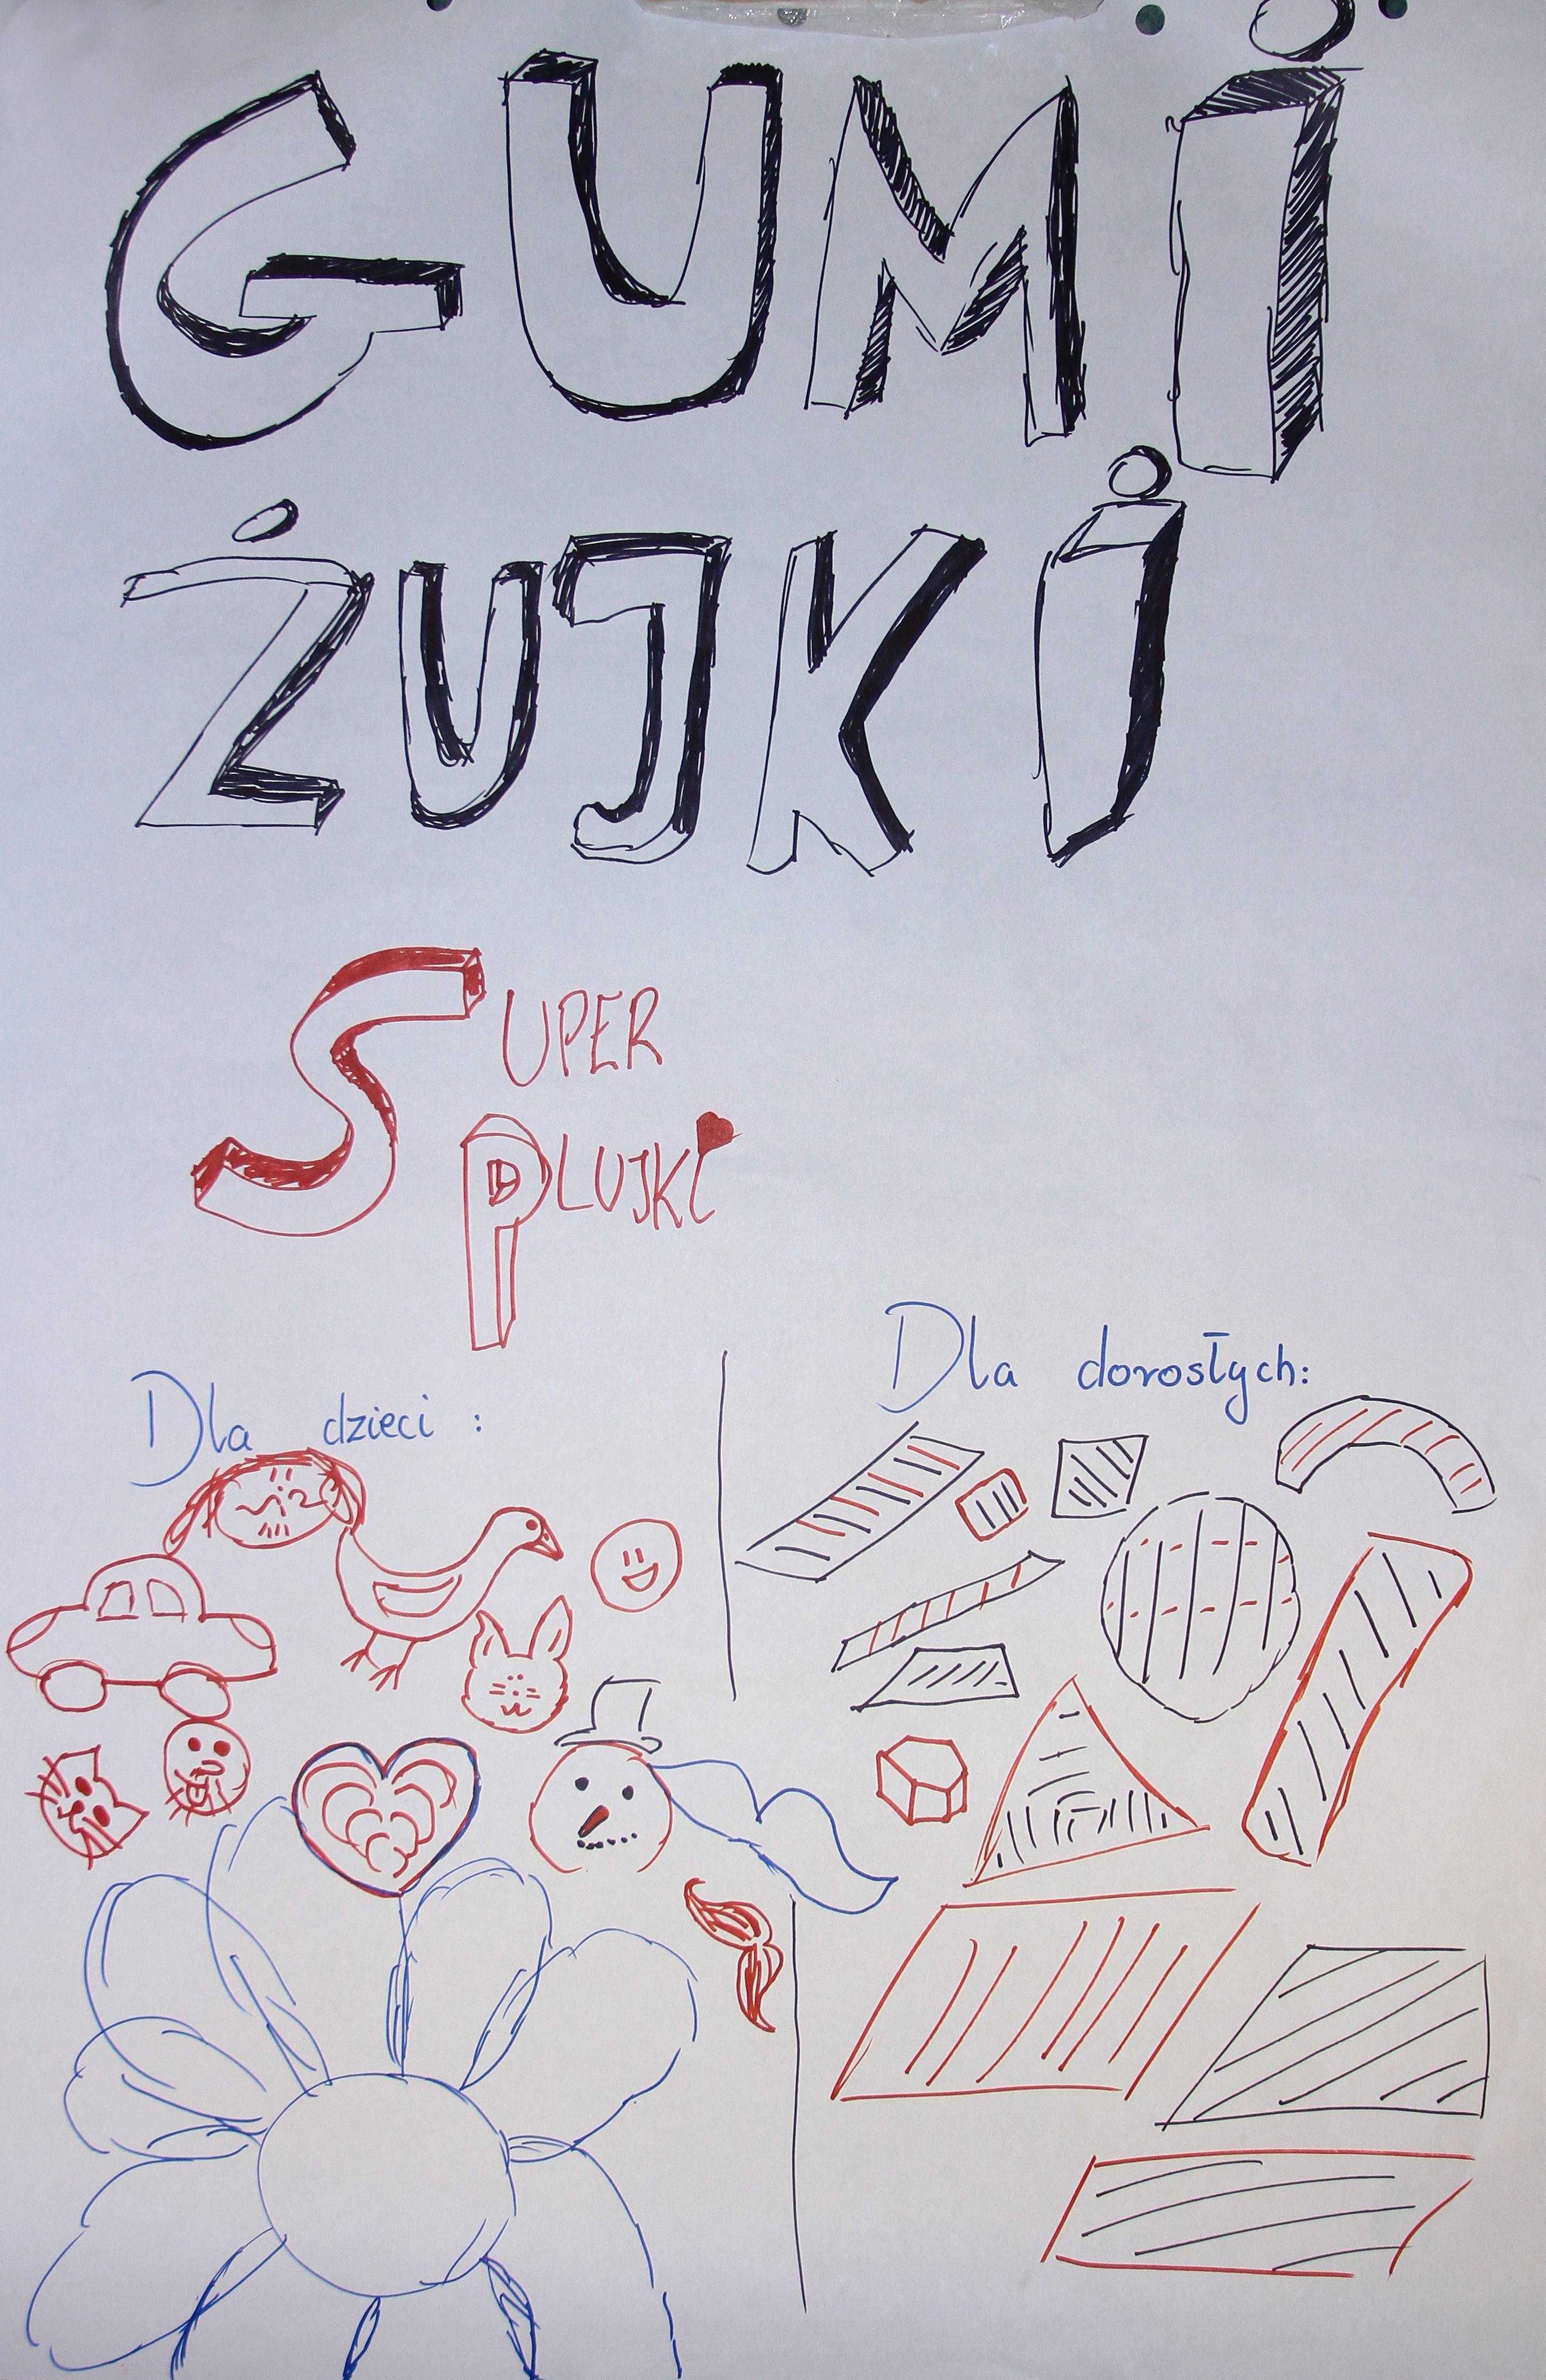 GUMi
ŻUJKi
SUPER
PLUJKi
Dla dzieci :
Dla dorosłych: